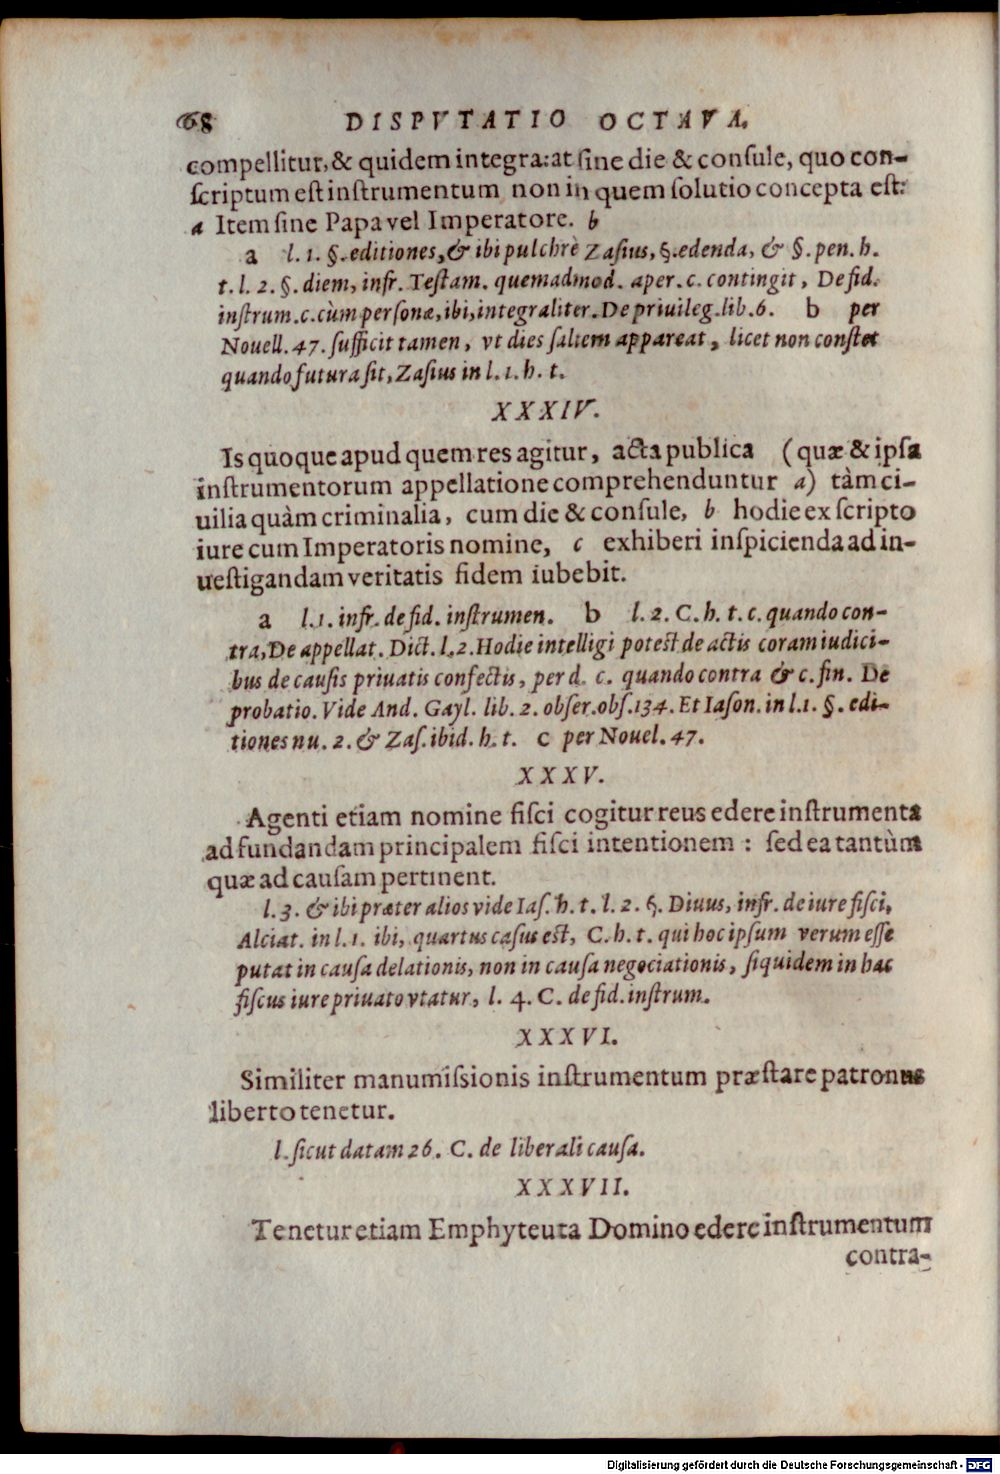 68 DISPVTATIO OCTAVA.
compellitur, & quidem integra: at sine die & consule, quo con-
scriptum est instrumentum non in quem solutio concepta est:
a Item sine Papa vel Imperatore. b
a l. 1. §. editiones, & ibi pulchrè Zasius, §. edenda, & §. pen. h.
t. l. 2. §. diem, infr. Testam. quemadmod. aper. c. contingit, De fid.
instrum. c. cùm personæ, ibi, integraliter. De priuileg. lib. 6. b per
Nouell. 47. sufficit tamen, vt dies saltem appareat, licet non constet
quando futura sit, Zasius in l. 1. h. t.
XXXIV.
Is quoque apud quem res agitur, acta publica (quæ & ipsa
instrumentorum appellatione comprehenduntur a) tàm ci-
uilia quàm criminalia, cum die & consule, b hodie ex scripto
iure cum Imperatoris nomine, c exhiberi inspicienda ad in-
uestigandam veritatis fidem iubebit.
a l. 1. infr. de fid. instrumen. b l. 2. C. h. t. c. quando con-
tra, De appellat. Dict. l. 2. Hodie intelligi potest de actis coram iudici-
bus de causis priuatis confectis, per d. c. quando contra & c. fin. De
probatio. Vide And. Gayl. lib. 2. obser. obs. 134. Et Iason. in l. 1. §. edi-
tiones nu. 2. & Zas. ibid. h. t. c per Nouel. 47.
XXXV.
Agenti etiam nomine fisci cogitur reus edere instrumenta
ad fundandam principalem fisci intentionem : sed ea tantùm
quæ ad causam pertinent.
l. 3. & ibi præter alios vide Ias. h. t. l. 2. §. Diuus, infr. de iure fisci,
Alciat. in l. 1. ibi, quartus casus est, C. h. t. qui hoc ipsum verum esse
putat in causa delationis, non in causa negociationis, siquidem in hac
fiscus iure priuato vtatur, l. 4. C. de fid. instrum.
XXXVI.
Similiter manumissionis instrumentum præstare patronus
liberto tenetur.
l. sicut datam 26. C. de liberali causa.
XXXVII.
Tenetur etiam Emphyteuta Domino edere instrumentum
contra-
Digitalisierung gefördert durch die Deutsche Forschungsgemeinschaft - DFG